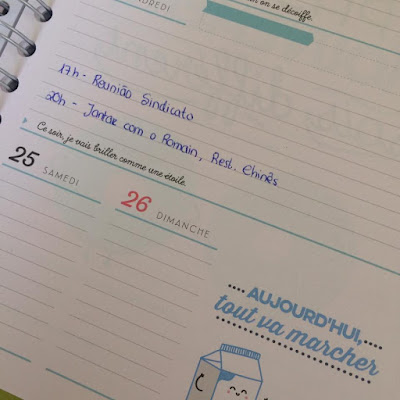 on se décoiffe.
17h - Reunião Sindicato
20h - Jantar com o Romain, Rest. Chinês
Ce soir, je vais briller comme une étoile.
25 SAMEDI
26 DIMANCHE
AUJOURD'HUI,
tout va marcher